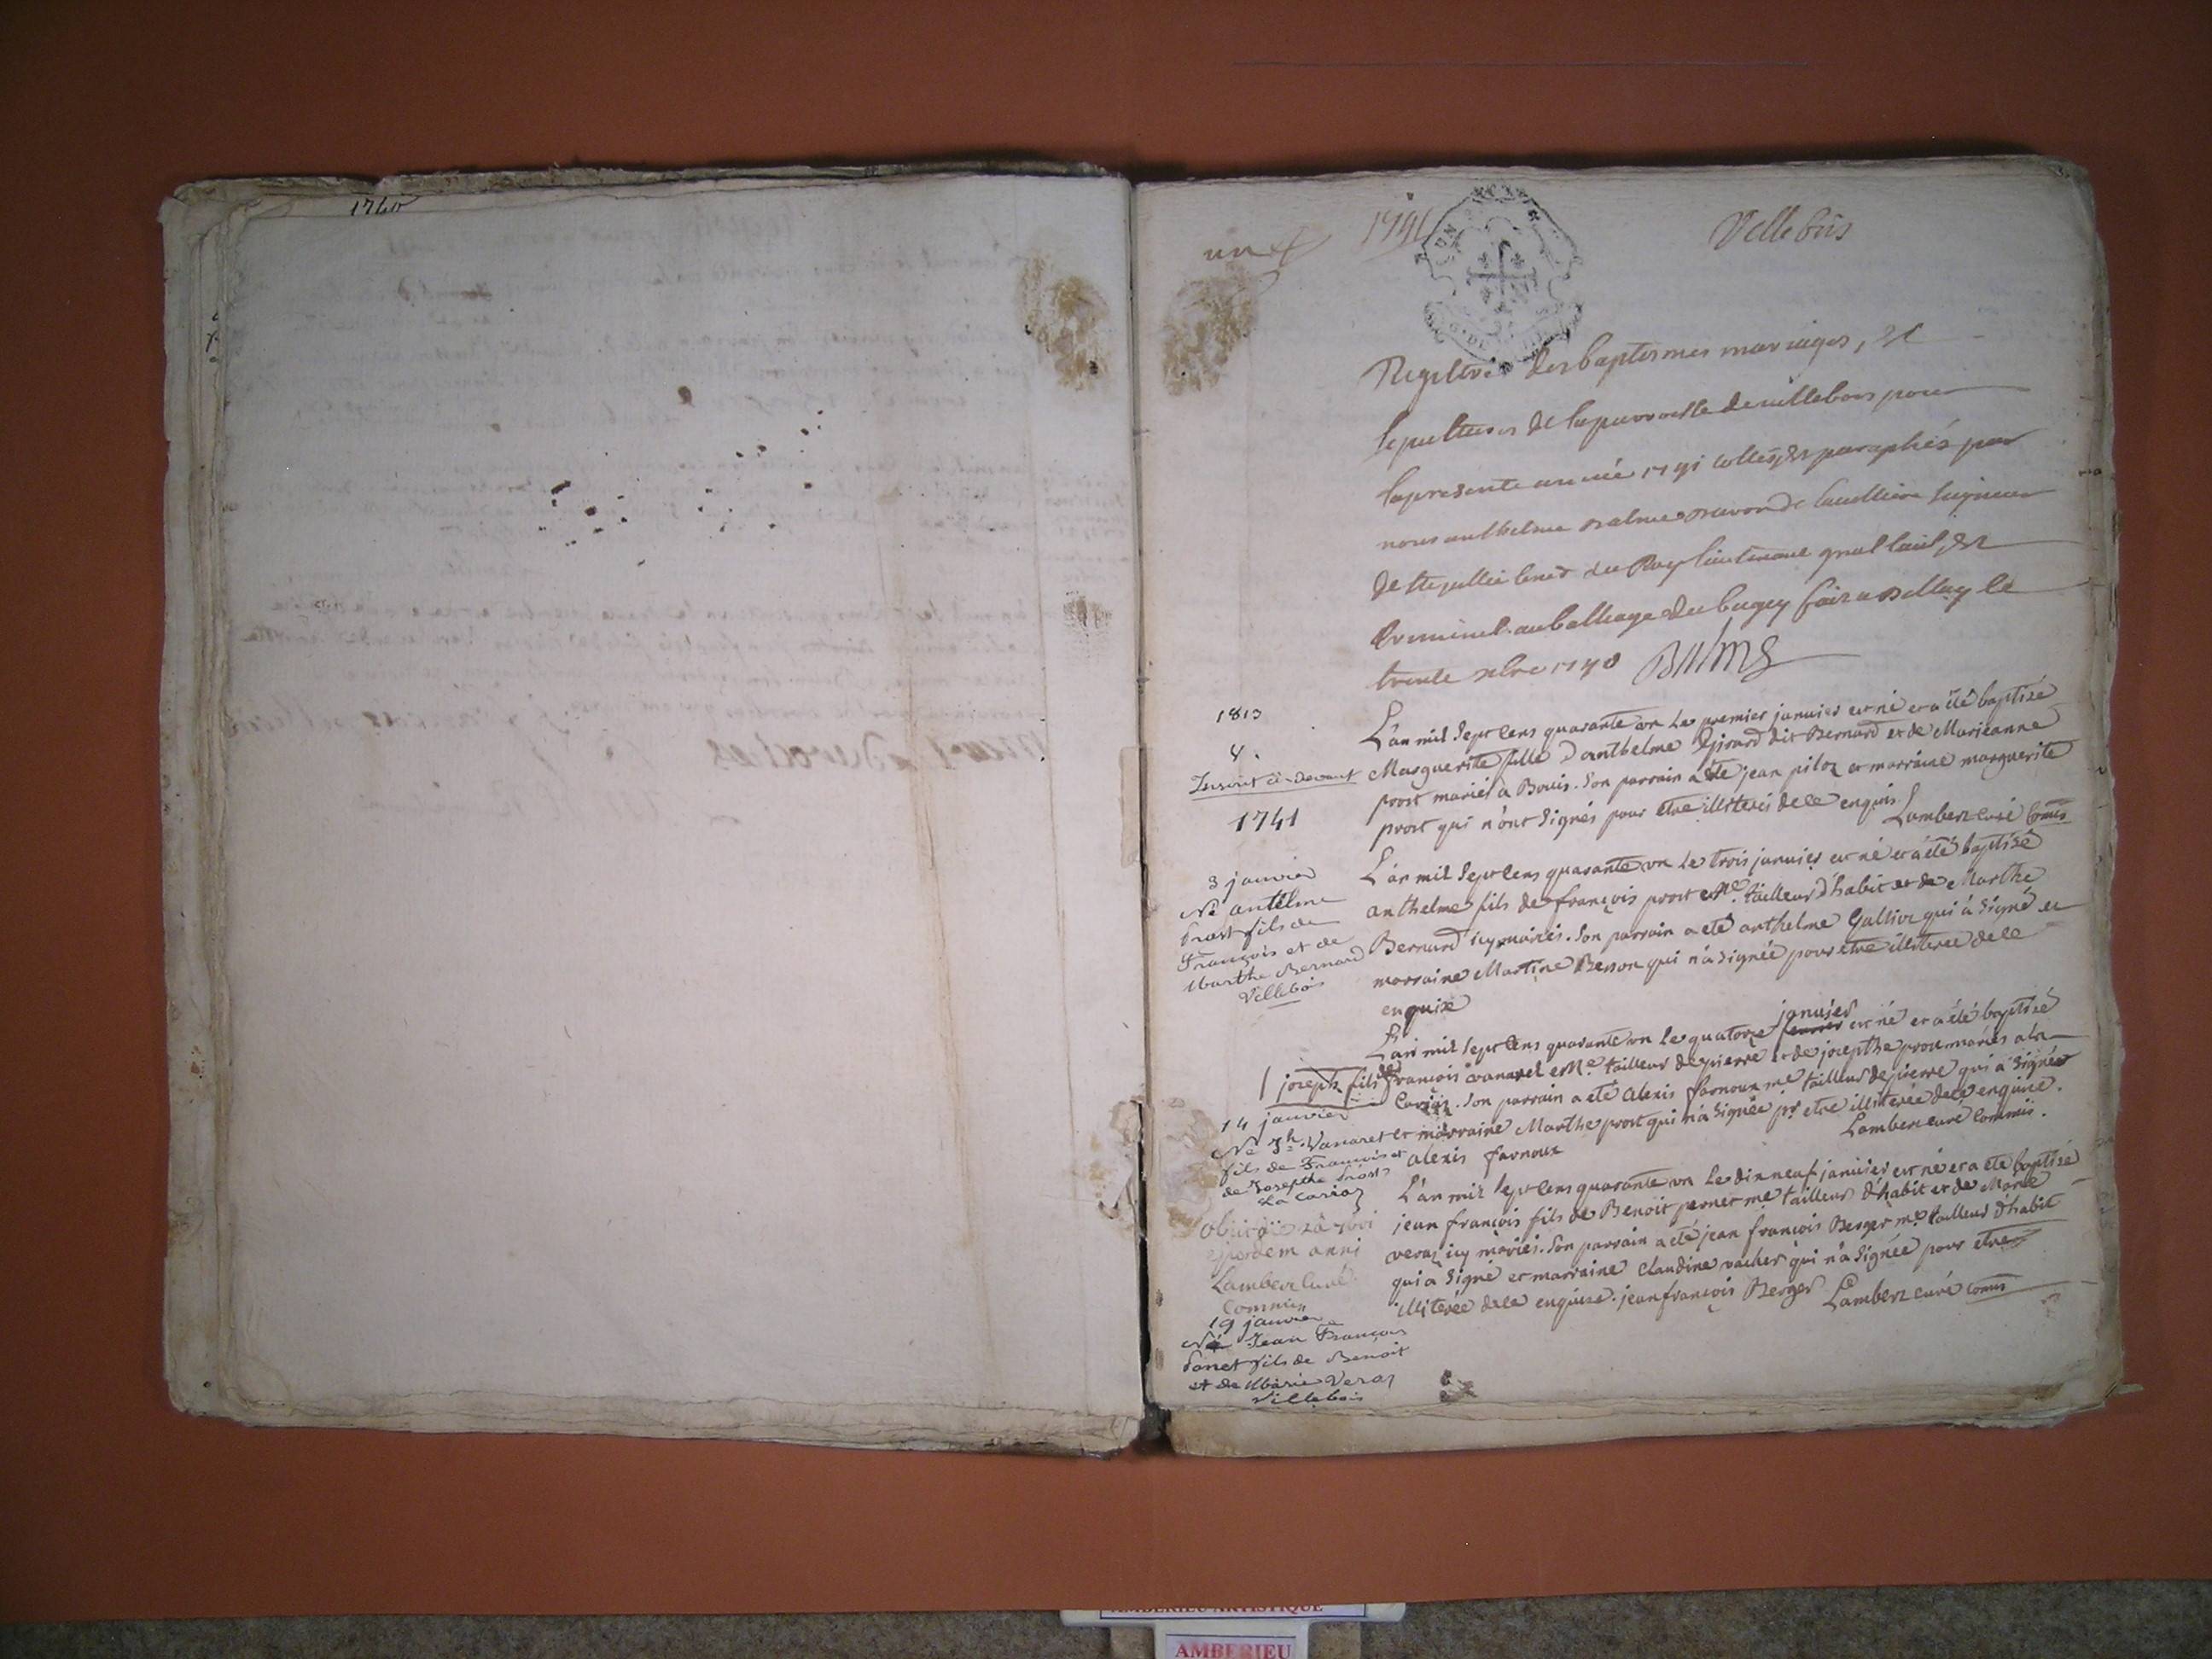 1740
un
1741
Villebois
Registre des baptesmes mariages, et
sepultures de la parroisse de villebois pour
la presente année 1741 cottés et paraphés par
nous anthelme balme baron de seigneur
de du Roy lieutenant gnal civil, et
criminel au balliage du bugey fait a Bellay le
trente xbre 1740 Balme
1813
4.
Inscrit ci-devant
1741
L'an mil sept cens quarante vn Le premier januier est né et a été baptisé
Marguerite fille d'anthelme Girard dit Bernard et de Marieanne
prost mariés à Bouis. Son parrain a été jean piloz et marraine marguerite
prost qui n'ont signés pour etre illiterés de ce enquis. Lambert curé Comis
3 janvier
Né antelme
Prost fils de
François et de
Marthe Bernard
Villebois
L'an mil sept cens quarante vn Le trois januier est né et a été baptisé
anthelme fils de françois prost Me. tailleur d'habit et de Marthe
Bernard icy mariés. Son parrain a été anthelme Gallior qui a signé et
marraine Martine Besson qui n'a signée pour etre illiterée de ce
enquise
L'an mil sept cens quarante vn Le quatorze januier est né et a été baptisé
joseph fils de françois vanaret Me. tailleur de pierre et de josepthe prost mariés a la
Carioz. Son parrain a été Alexis farnoux me tailleur de pierre qui a signé
et marraine Marthe prost qui n'a signée pr etre illiterée de ce enquise.
alexis farnoux Lambert curé Commis.
14 janvier
Né Jh. Vanaret
fils de François et
de Josepthe Prost
La Carioz
obiit die
ejusdem anni
Lambert curé
Commis
L'an mil sept cens quarante vn Le dix neuf januier est né et a été baptisé
jean françois fils de Benoit perner me tailleur d'habit et de Marie
veraz icy mariés. Son parrain a été jean françois Berger me tailleur d'habit
qui a signé et marraine Claudine vacher qui n'a signée pour etre
illiterée de ce enquise. jean françois Berger Lambert curé Comis
19 janvier
Né Jean François
fils de Benoit
et de Marie Veraz
Villebois
AMBERIEU ARTISTIQUE
AMBERIEU